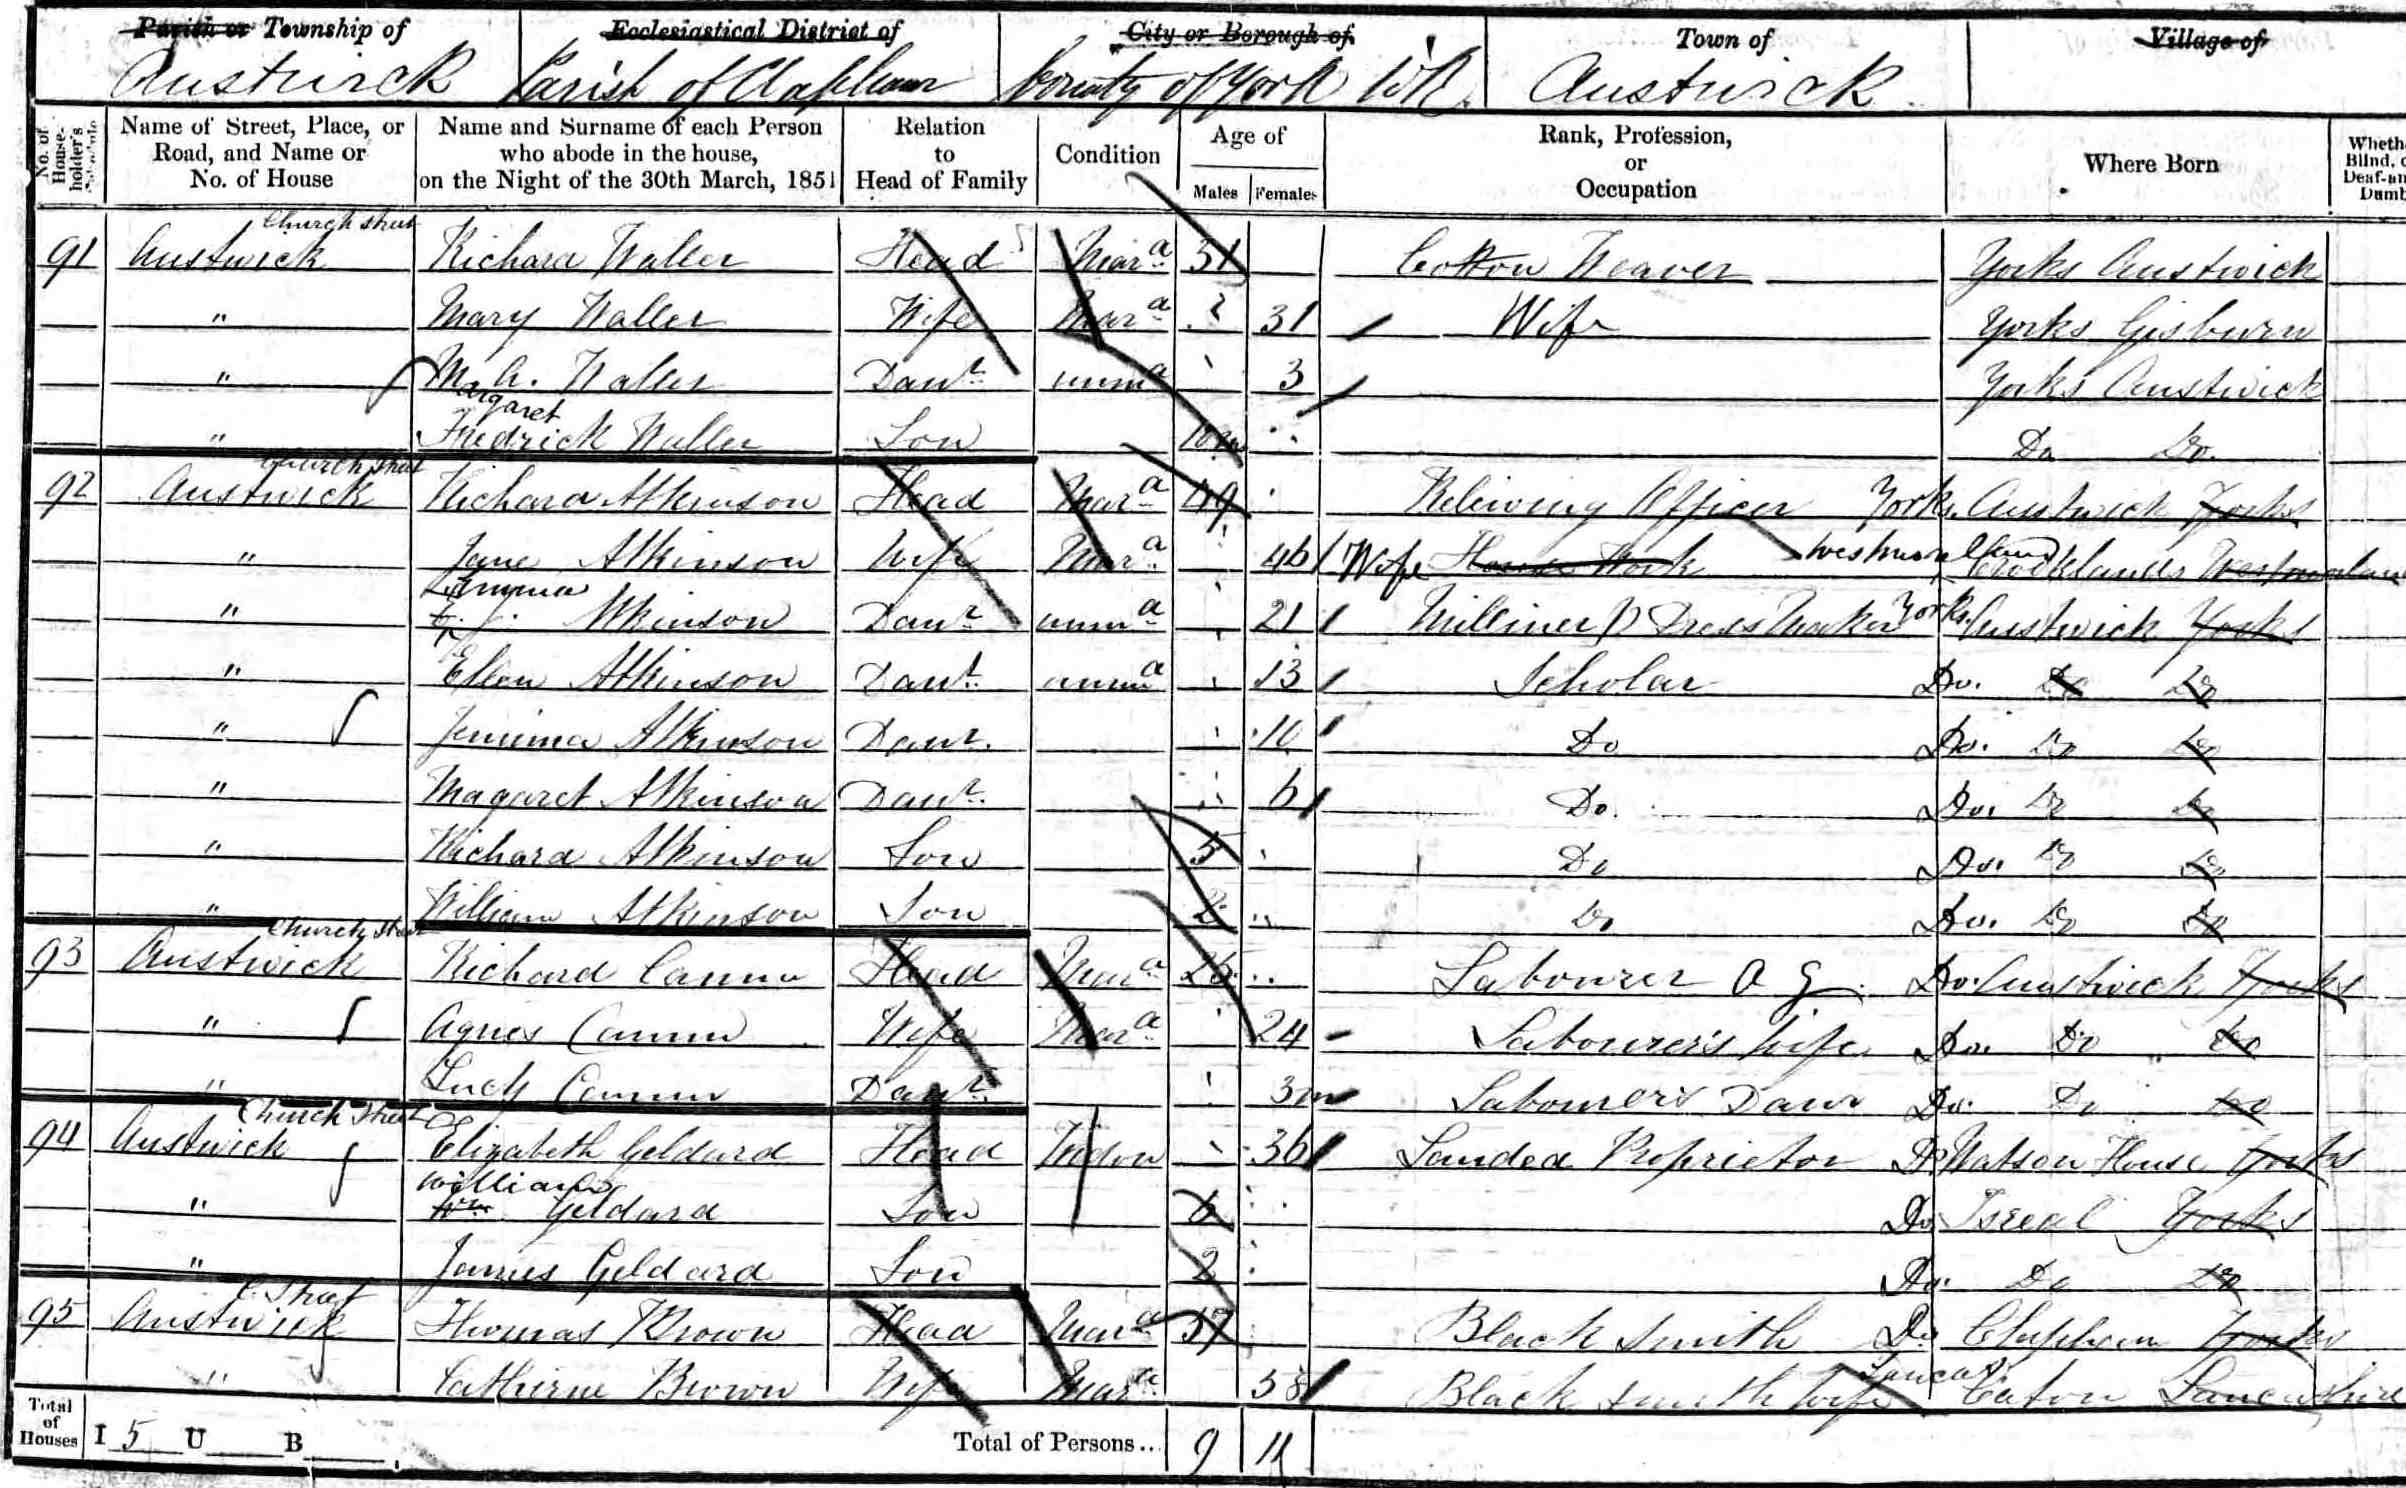 Parish or Township of Ecclesiastical District of City or Borough of Town of Village of
Austwick Parish of Clapham County of York W R. Austwick
No. of House-holder's Schedule Name of Street, Place, or Road, and Name or No. of House Name and Surname of each Person who abode in the house, on the Night of the 30th March, 1851 Relation to Head of Family Condition Age of Males Females Rank, Profession, or Occupation Where Born Wheth Blind, Deaf-an Dumb
Church Street
91 Austwick Richard Waller Head Mara 31 Cotton Weaver Yorks Austwick
" Mary Waller Wife Mara 31 Wife Yorks Gisburn
" M. A. Waller Daur unma 3 Yorks Austwick
Margaret
" Fredrick Waller Son 10m Do Do
Church Street
92 Austwick Richard Atkinson Head Mara 49 Releiving Officer Yorks. Austwick Yorks
" Jane Atkinson Wife Mara 46 Wife House Work Westmoreland Crooklands Westmorland
Emma
" Atkinson Daur unma 21 Milliner & Dress Maker Yorks. Austwick Yorks
" Ellen Atkinson Daur unma 13 Scholar Do. Do Do
" Jemima Atkinson Daur. 10 Do Do. Do Do
" Magaret Atkinson Daur. 6 Do. Do. Do Do
" Richard Atkinson Son 5 Do Do. Do Do
" William Atkinson Son 2 Do Do. Do Do
Church Street
93 Austwick Richard Camm Head Mara 25 Labourer A G Do. Austwick Yorks
" Agnes Camm Wife Mara 24 Labourer's wife Do. Do Do
" Camm Daur. 3m Labourer's Daur Do. Do Do
Church Street
94 Austwick Elizabeth Geldard Head Widow 36 Landed Proprietor Do Watson House Yorks
William
" Wm. Geldard Son 6 Do Yorks
" James Geldard Son 2 Do. Do Do
C Street
95 Austwick Thomas Brown Head Mara 57 Black Smith Do Clapham Yorks
" Catherine Brown Wife Mara 58 Black smith wife Lancas. Caton Lancashire
Total of Houses I 5 U B Total of Persons.. 9 11